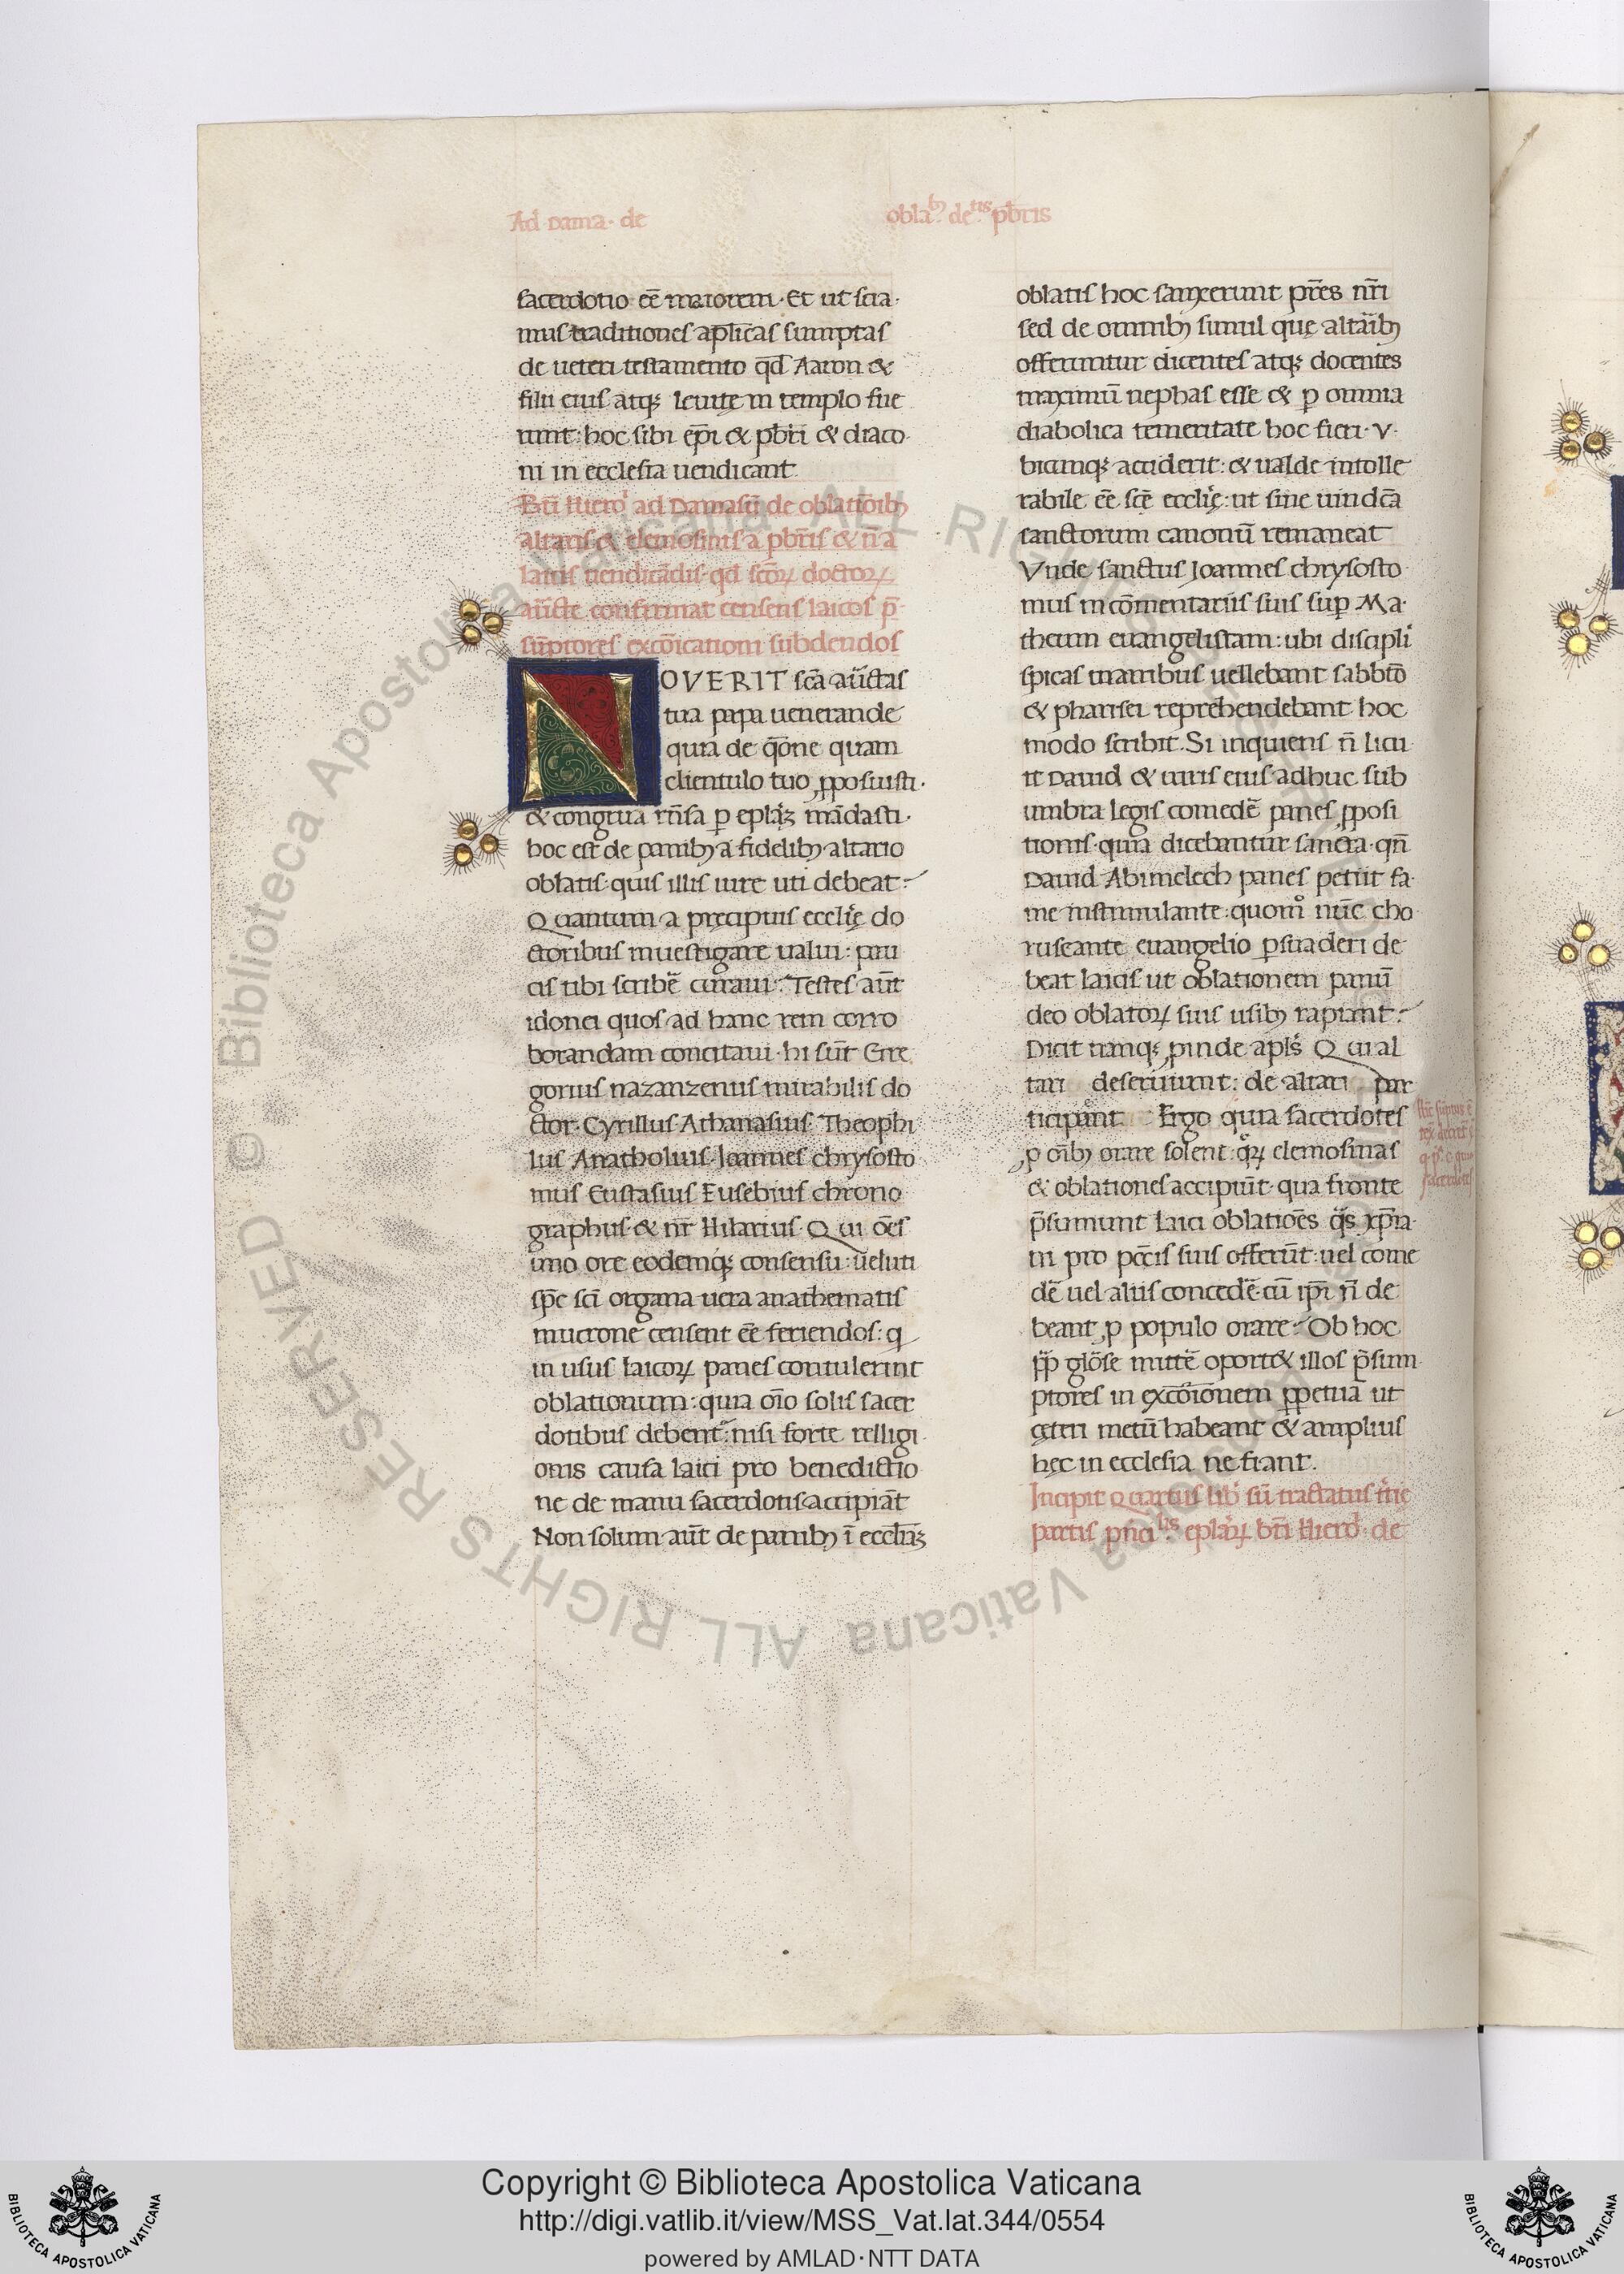 Ad Dama· de
obla^bꝫ. de^tis. pb̄ris
sacerdotio eē maiorem· Et ut scia·
mus traditiones apl̄icas sumptas
de ueteri testamento qd̄ Aaron &
filii eius atqꝫ leuitę in templo fue
runt: hoc sibi ep̄i & pb̄ri & diaco
ni in ecclesia uendicant
Bt̄i Hiero' ad Damasū de oblatiōibꝫ
altaris & elemosinis a pb̄ris & n̄ a
laicis uendicādis· qd̄ scōꝝ doctoꝝ
aūcte confirmat censens laicos p̄-
sūptores excōicationi subdendos
NOVERIT scā aūctas
tua papa uenerande
quia de q̄one quam
clientulo tuo ꝓposuisti·
& congrua rn̄sa ꝑ epl̄aꝫ mādasti·
hoc est de panibꝫ a fidelibꝫ altario
oblatis· quis illis iure uti debeat·
Quantum a pręcipuis ecclīę do
ctoribus inuestigare ualui: pau
cis tibi scribē curaui· Testes aūt
idonei quos ad hanc rem corro
borandam concitaui· hi sūt Gre
gorius nazanzenus mirabilis do
ctor· Cyrillus· Athanasius· Theophi
lus Anatholius· Joannes chrysosto
mus Eustasius Eusebius chrono
graphus· & nr̄ Hilarius· Qui oēs
uno ore eodemqꝫ consensu: ueluti
spc̄ scī organa uera anathematis
mucrone censent eē feriendos: q
in usus laicoꝝ panes contulerint
oblationum: quia oīo solis sacer
dotibus debent: nisi forte relligi
onis causa laici pro benedictio
ne de manu sacerdotis accipiāt
Non solum aūt de panibꝫ ī eccl̄iis
oblatis hoc sanxerunt pr̄es nr̄i
sed de omnibꝫ simul quę altaribꝫ
offeruntur dicentes atqꝫ docentes
maximū nephas esse & ꝑ omnia
diabolica temeritate hoc fieri· V·
bicunqꝫ acciderit: & ualde intolle
rabile eē scē ecclīę: ut sine uindc̄a
sanctorum canonū remaneat
Vnde sanctus Joannes chrysosto
mus in cōmentariis suis sup̄ Ma·
theum euangelistam: ubi discipli'
spicas manibus uellebant sabbt̄o
& pharisei reprehendebant hoc
modo scribit· Si inquiens n̄ licu
it Dauid & uiris eius adhuc sub
umbra legis comedē panes ꝓposi
tionis· quia dicebantur sancta· qn̄
Dauid Abimelech panes petiit fa·
me instimulante· quom° nūc cho
ruscante euangelio ꝑsuaderi de
beat laicis ut oblationem panū
deo oblatoꝝ suis usibꝫ rapiant·
Dicit nanqꝫ ꝓinde apl̄s Qui al
tari deseruiunt: de altari par
ticipant Ergo quia sacerdotes
ꝓ oībꝫ orare solent: qͦꝝ elemosinas
& oblationes accipiūt· qua fronte
p̄sumunt laici oblatiōes qͣs xp̄ia·
ni pro pcc̄is suis offerūt: uel come
dē uel aliis concedē· cū ip̄i n̄ de
beant ꝓ populo orare· Ob hoc
glōse mittē oport& illos p̄sum
ptores in excōīonem ꝑpetua ut
cęteri metū habeant & amplius
hęc in ecclesia ne fiant.
Incipit Quartus lib' sū tractatus tr̄ie
partis pn̄ci^lis. epl̄aꝝ bt̄i Hiero' de
Copyright © Biblioteca Apostolica Vaticana
http://digi.vatlib.it/view/MSS_Vat.lat.344/0554
powered by AMLAD·NTT DATA
BIBLIOTECA APOSTOLICA VATICANA
BIBLIOTECA APOSTOLICA VATICANA
© Biblioteca Apostolica Vaticana ALL RIGHTS RESERVED